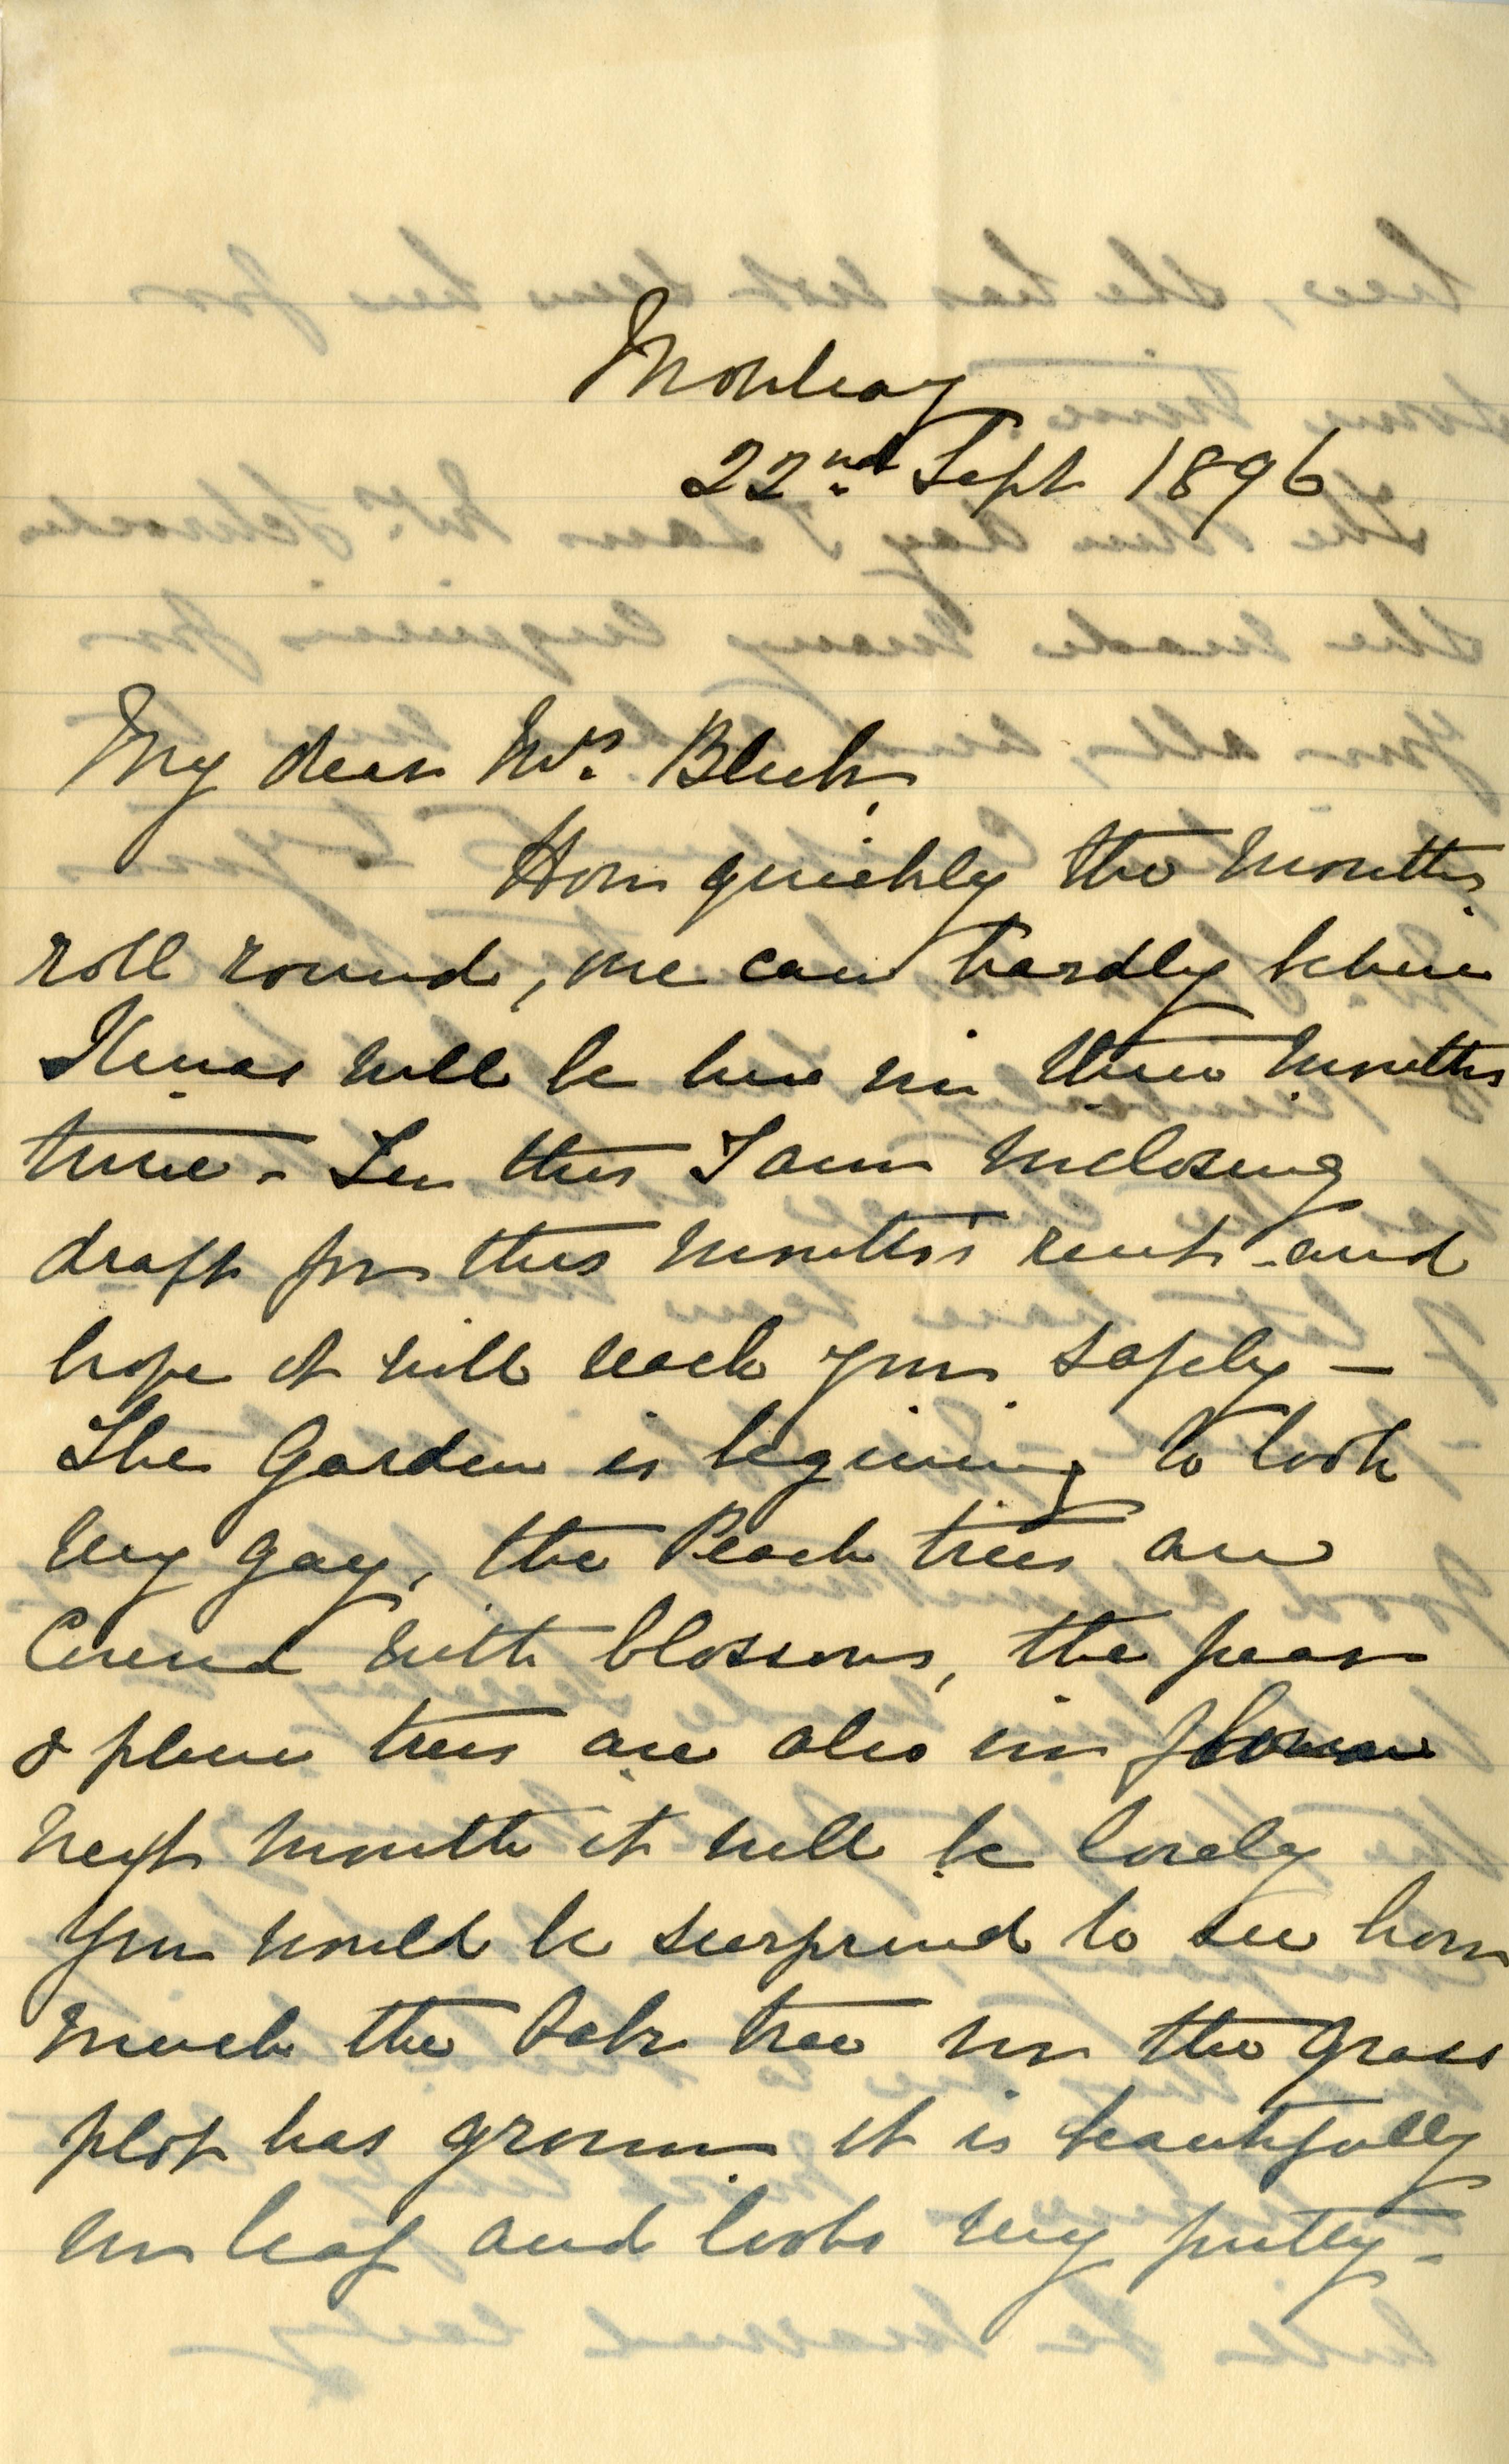 Monbray
22nd Sept 1896
My dear Mrs. Bleek,
How quickly the months
roll round, we can hardly believe
Xmas will be here in three months
time - In this I am inclosing
draft for this month's rent and
hope it will reach you safely —
The Garden is begining to look
very gay, the Peach trees are
Covered with blossoms, the pear
& plum trees are also in flower
next month it will be lovely
You would be surprised to see how
much the Oak tree on the grass
plot has grown it is beautifully
in leaf and looks very pretty -